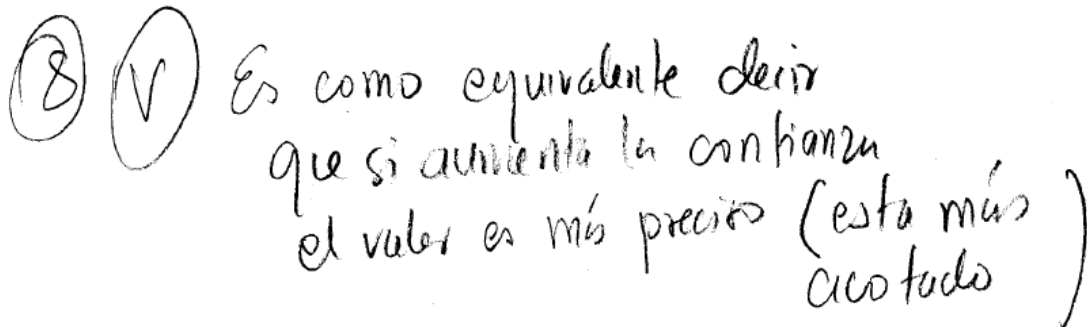 8 V Es como equivalente decir
que si aumenta la confianza
el valor es más preciso (esta más
acotado)